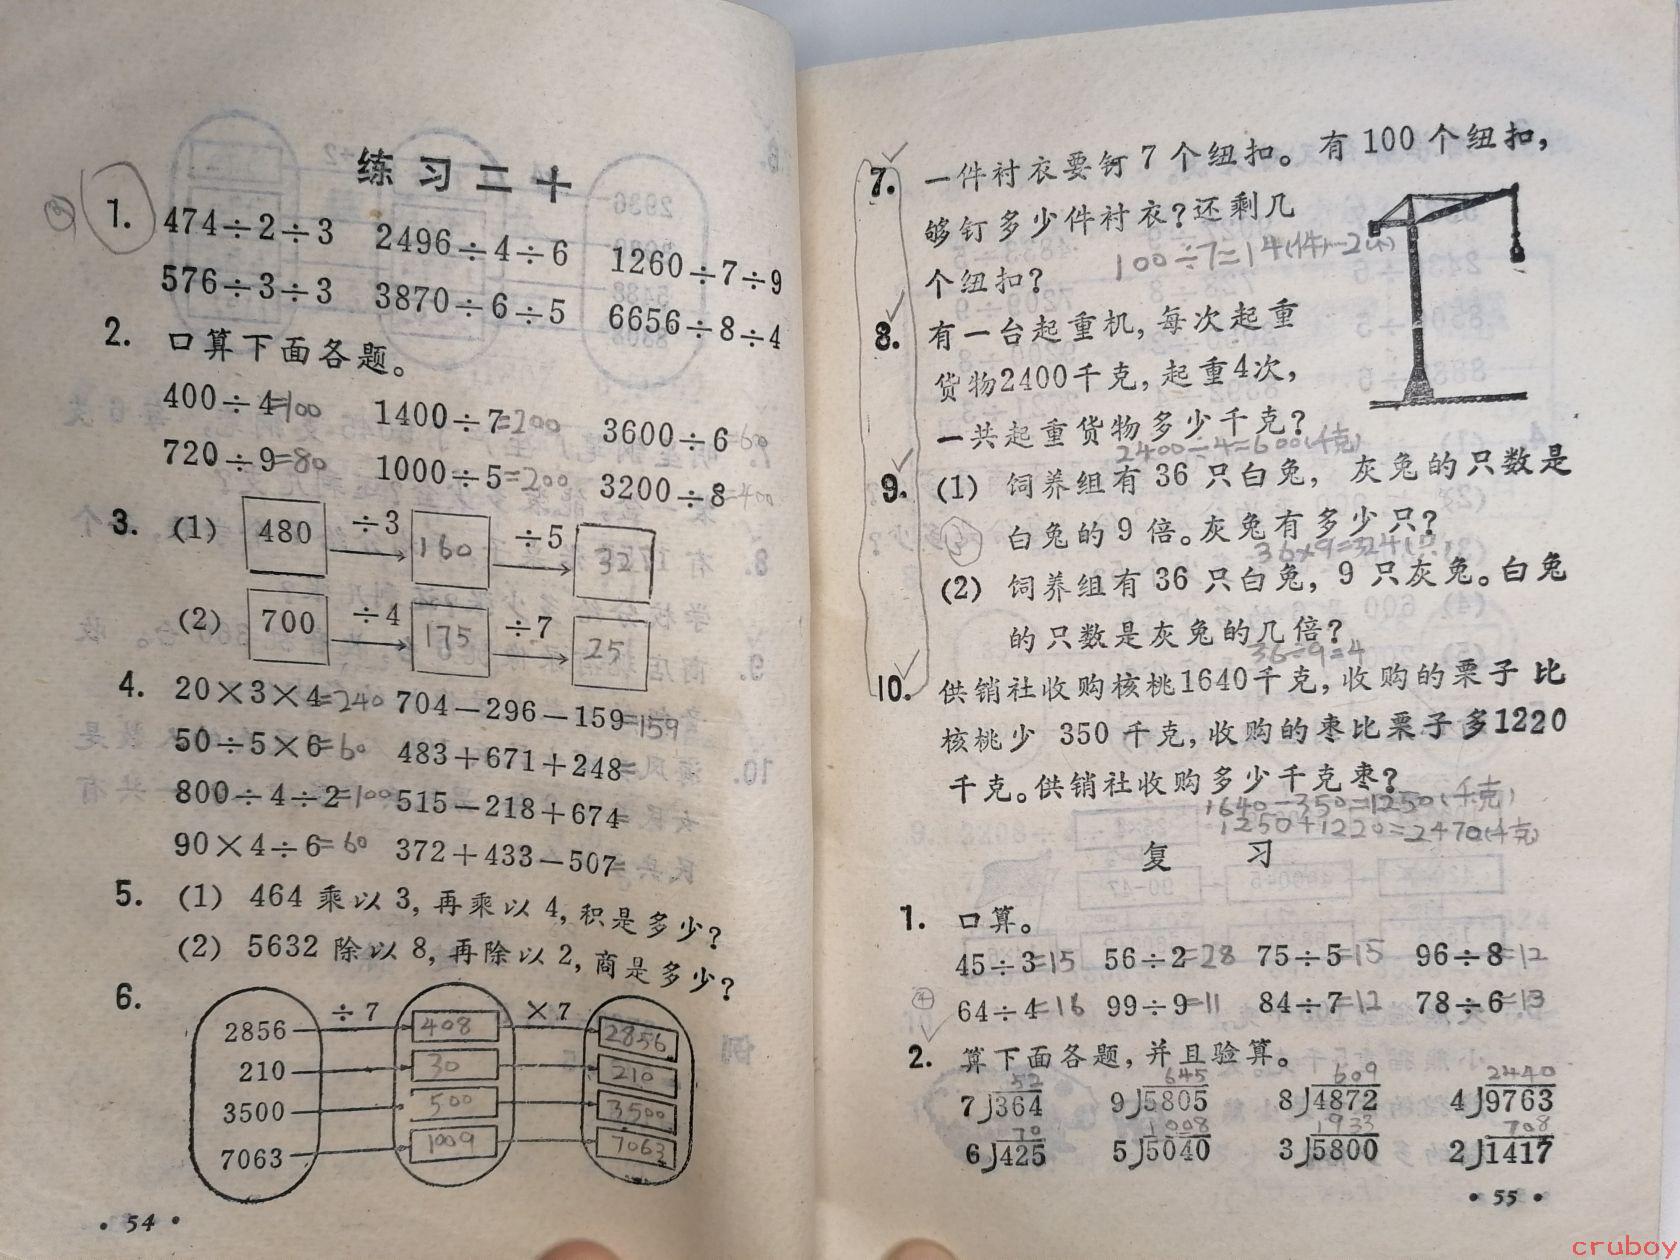 练习二十
③ 1. 474÷2÷3 2496÷4÷6 1260÷7÷9
576÷3÷3 3870÷6÷5 6656÷8÷4
2. 口算下面各题。
400÷4=100 1400÷7=200 3600÷6=60
720÷9=80 1000÷5=200 3200÷8=400
3. (1) 480 ÷3 160 ÷5 32
(2) 700 ÷4 175 ÷7 25
4. 20×3×4=240 704－296－159=159
50÷5×6=60 483＋671＋248=
800÷4÷2=100 515－218＋674=
90×4÷6=60 372＋433－507=
5. (1) 464 乘以 3, 再乘以 4, 积是多少?
(2) 5632 除以 8, 再除以 2, 商是多少?
6. ÷7 ×7
2856 408 2856
210 30 210
3500 500 3500
7063 1009 7063
• 54 •
7. 一件衬衣要钉 7 个纽扣。有 100 个纽扣,
够钉多少件衬衣?还剩几
100÷7=14(件)…2(个)
个纽扣?
8. 有一台起重机, 每次起重
货物2400千克, 起重4次,
一共起重货物多少千克?
2400÷4=600(千克)
9. (1) 饲养组有 36 只白兔, 灰兔的只数是
白兔的 9 倍。灰兔有多少只?
36×9=324(只)
(2) 饲养组有 36 只白兔, 9 只灰兔。白兔
的只数是灰兔的几倍?
36÷9=4
10. 供销社收购核桃1640千克, 收购的栗子比
核桃少 350 千克, 收购的枣比栗子多1220
千克。供销社收购多少千克枣?
1640－350=1250(千克)
1250+1220=2470(千克)
复习
1. 口算。
45÷3=15 56÷2=28 75÷5=15 96÷8=12
④ 64÷4=16 99÷9=11 84÷7=12 78÷6=13
2. 算下面各题, 并且验算。
52 645 609 2440
7)364 9)5805 8)4872 4)9763
70 1008 1933 708
6)425 5)5040 3)5800 2)1417
• 55 •
cruboy